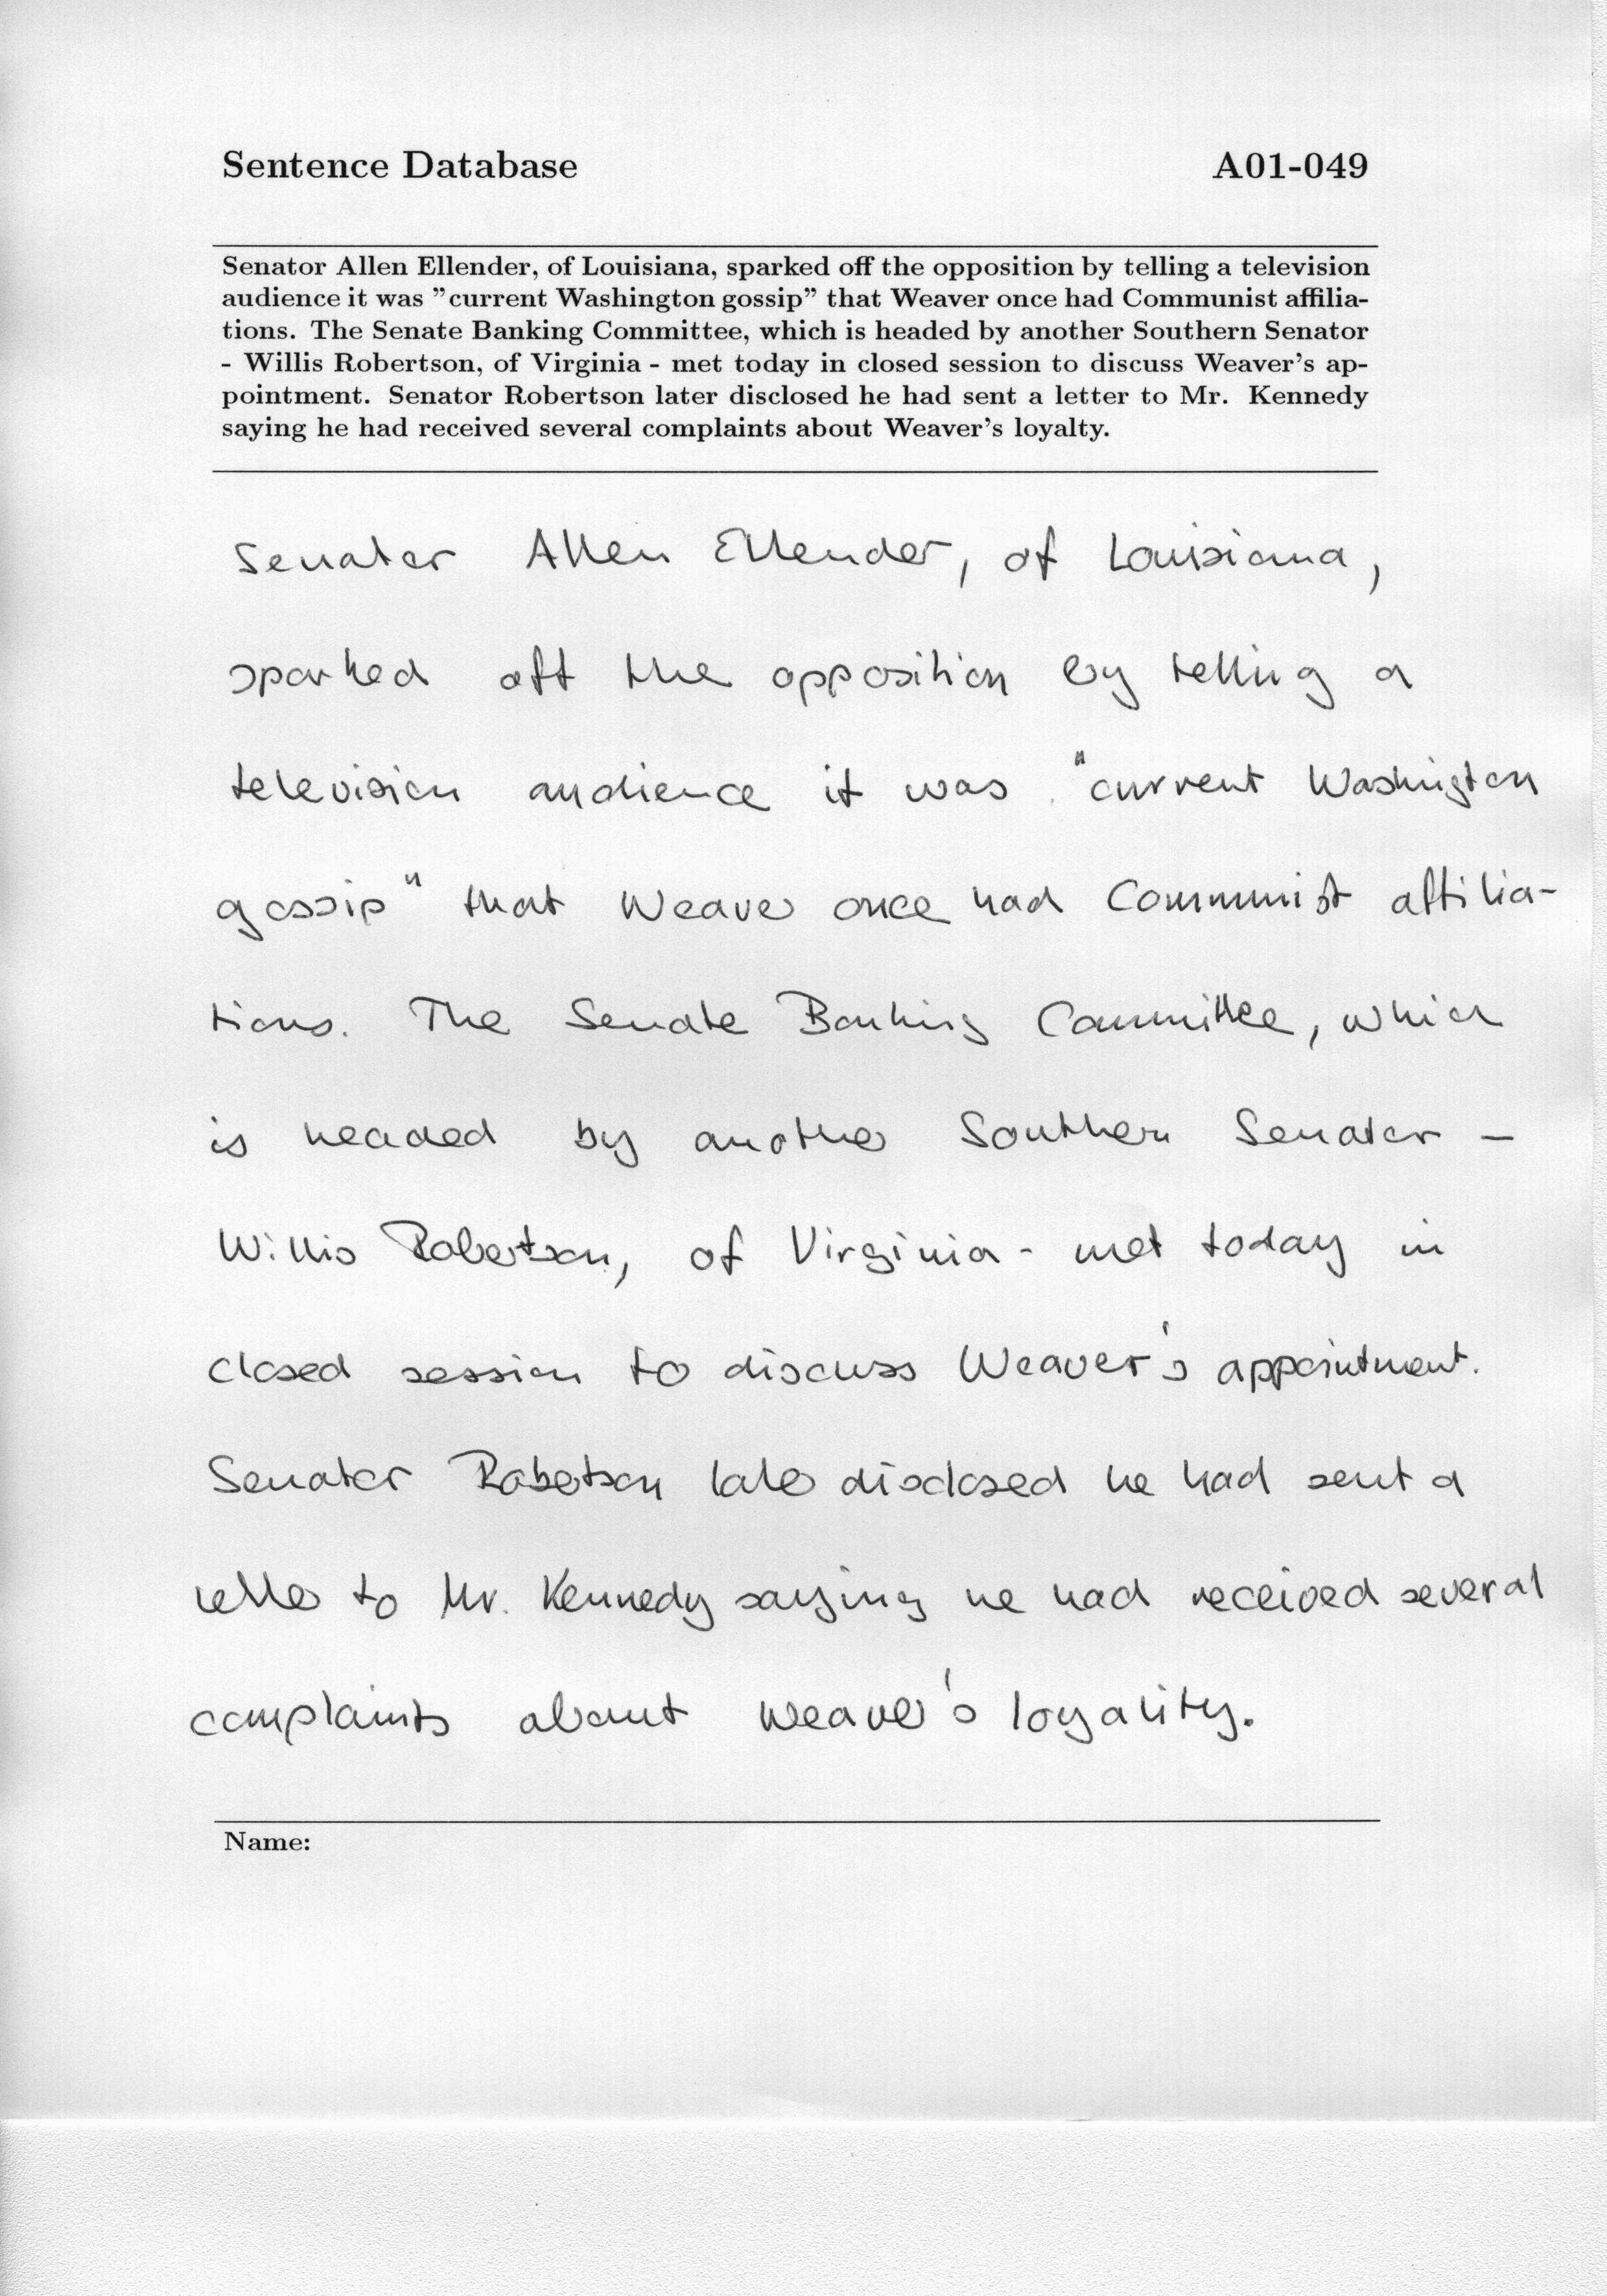 Sentence Database A01-049
Senator Allen Ellender, of Louisiana, sparked off the opposition by telling a television
audience it was "current Washington gossip" that Weaver once had Communist affilia-
tions. The Senate Banking Committee, which is headed by another Southern Senator
- Willis Robertson, of Virginia - met today in closed session to discuss Weaver's ap-
pointment. Senator Robertson later disclosed he had sent a letter to Mr. Kennedy
saying he had received several complaints about Weaver's loyalty.
Senator Allen Ellender, of Louisiana,
sparked off the opposition by telling a
television audience it was "current Washington
gossip" that Weaver once had Communist affilia-
tions. The Senate Banking Committee, which
is headed by another Southern Senator -
Willis Robertson, of Virginia - met today in
closed session to discuss Weaver's appointment.
Senator Robertson later disclosed he had sent a
letter to Mr. Kennedy saying he had received several
complaints about Weaver's loyality.
Name: